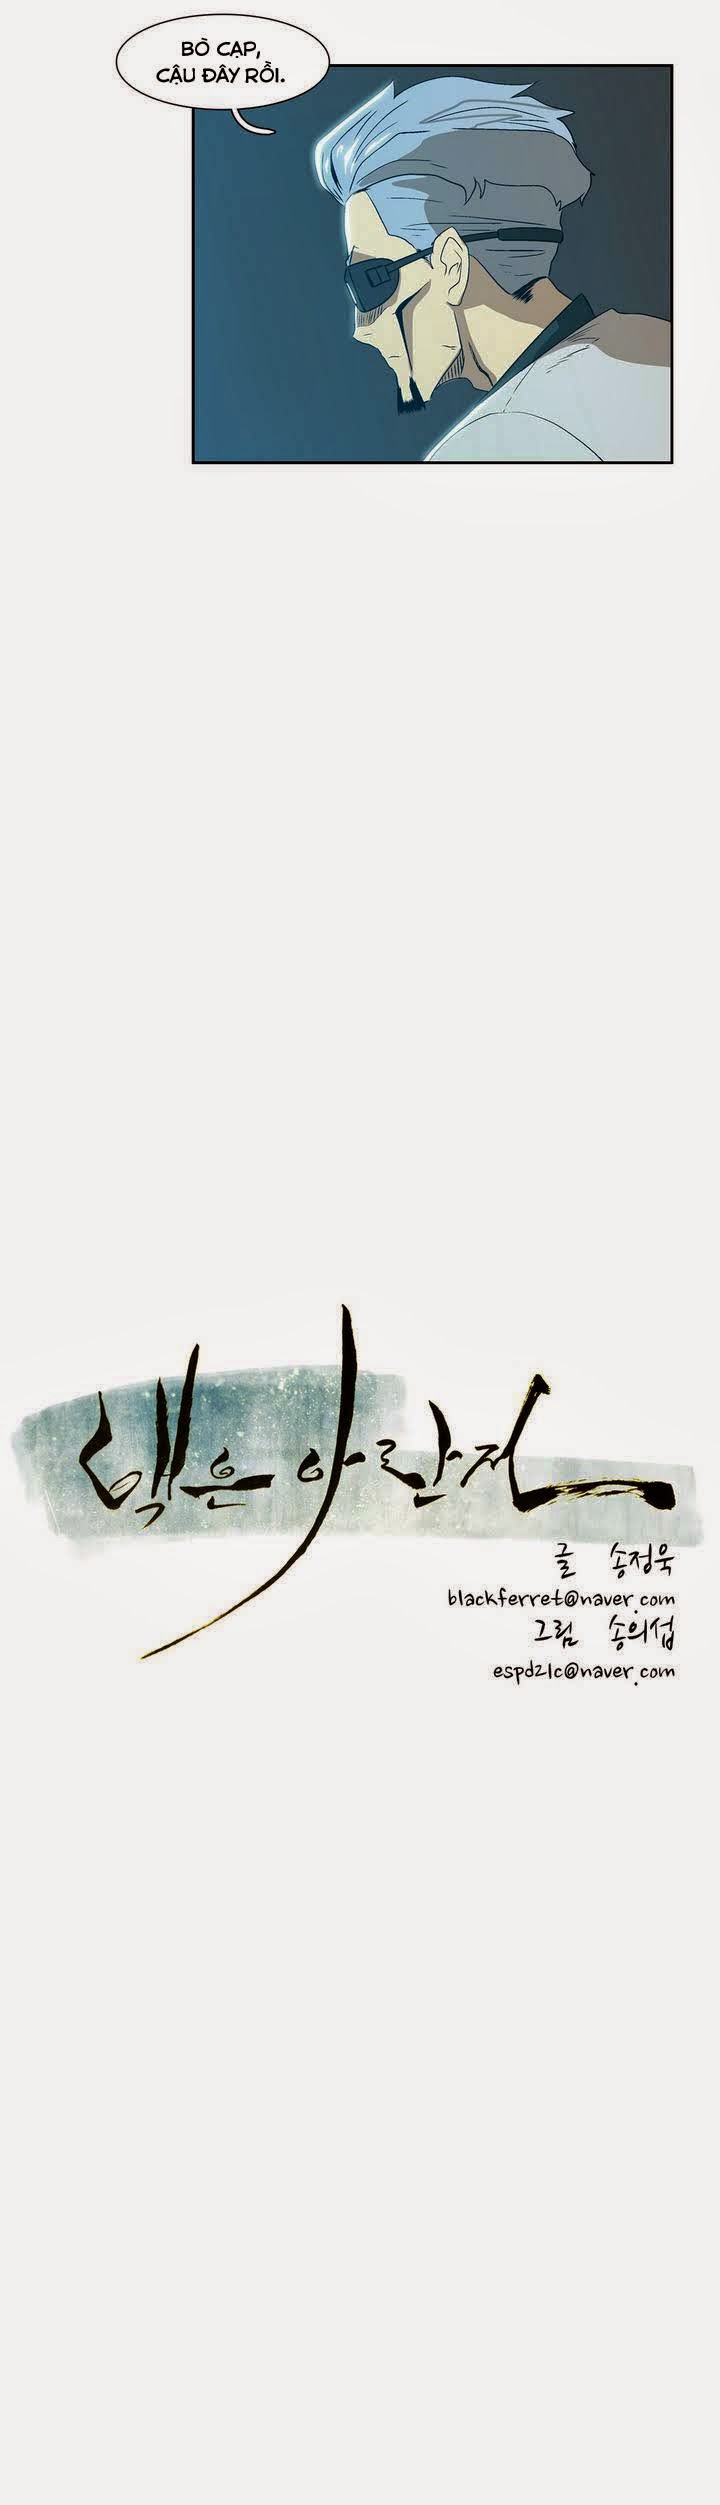 BÒ CẠP,
CẬU ĐÂY RỒI.
백은아란전
글 송정욱
blackferret@naver.com
그림 송의섭
espd21c@naver.com